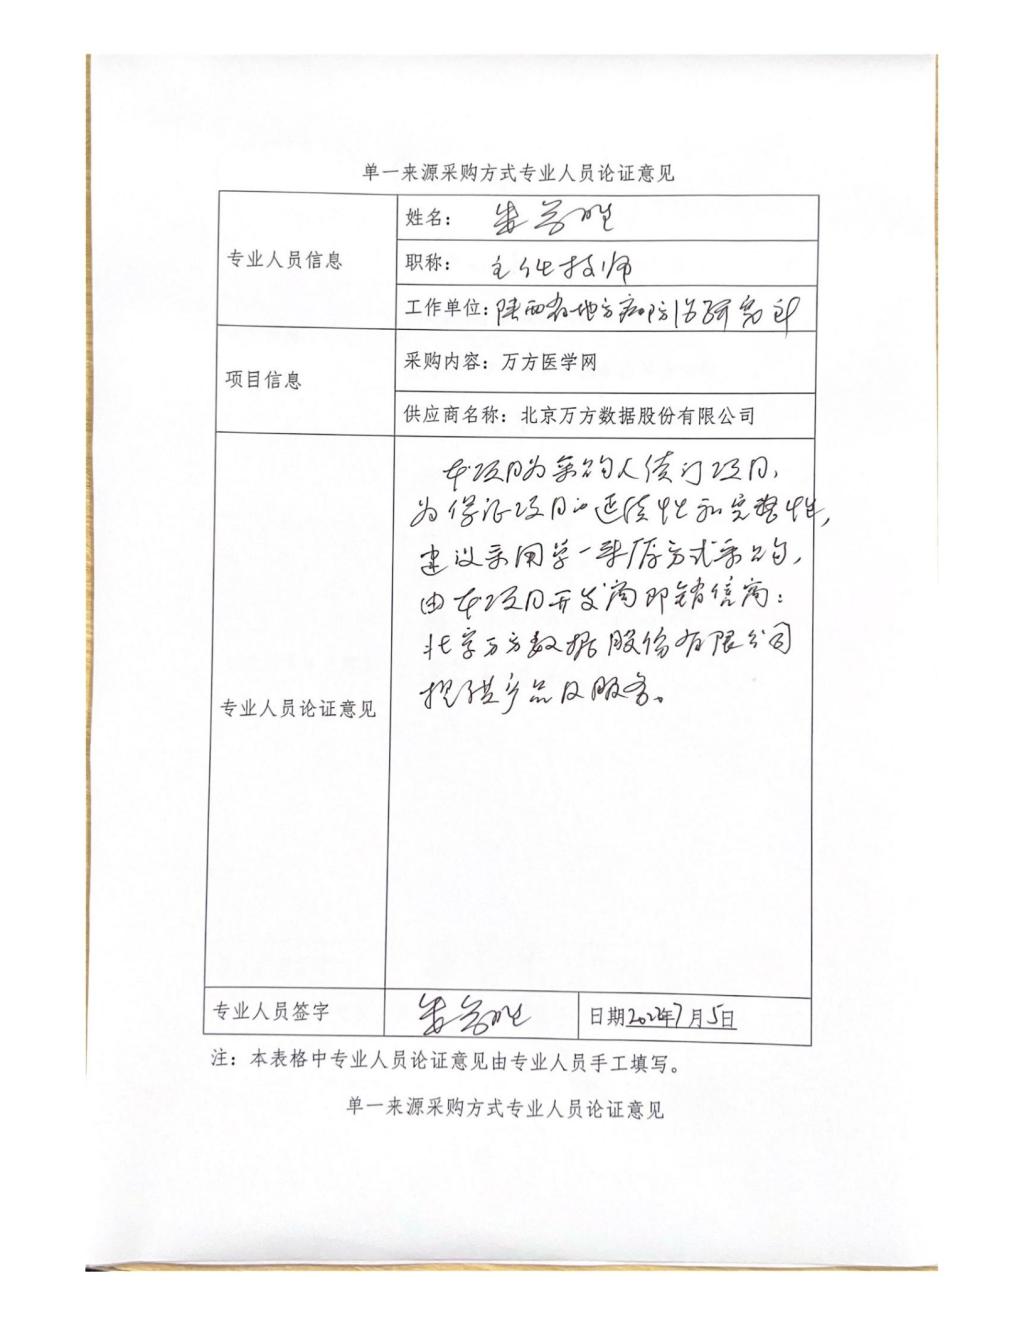 单一来源采购方式专业人员论证意见
专业人员信息
姓名：
职称： 主任技师
工作单位：陕西省地方病防治研究所
项目信息
采购内容：万方医学网
供应商名称：北京万方数据股份有限公司
专业人员论证意见
本项目为采购人续订项目，
为保证项目的延续性和完整性，
建议采用单一来源方式采购，
由本项目开发商即销售商：
北京万方数据股份有限公司
提供产品及服务。
专业人员签字
日期2022年7月5日
注：本表格中专业人员论证意见由专业人员手工填写。
单一来源采购方式专业人员论证意见